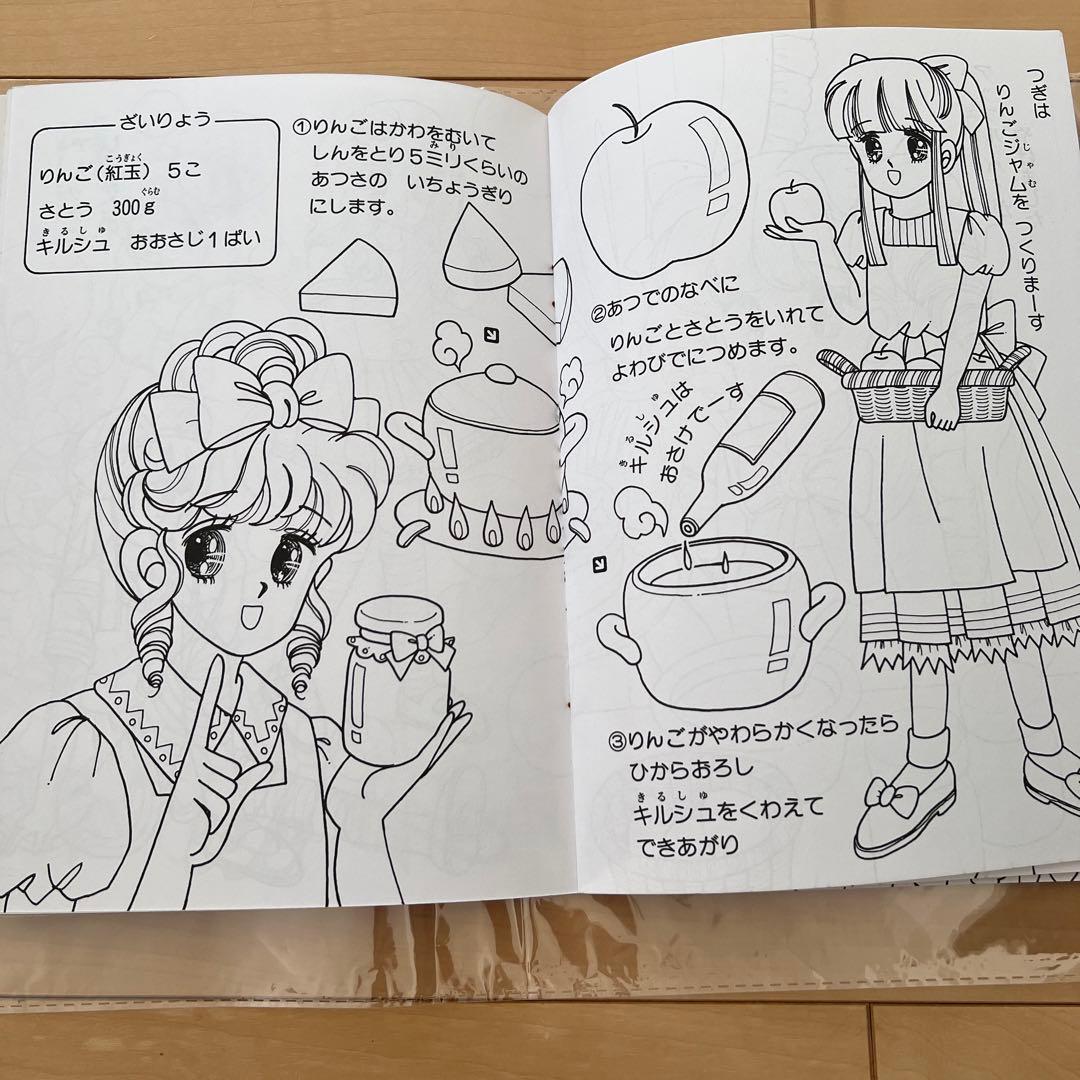 ざいりょう
りんご(紅玉) 5こ
こうぎょく
さとう 300g
ぐらむ
キルシュ おおさじ1ぱい
きるしゅ
①りんごはかわをむいて
しんをとり5ミリくらいの
みり
あつさの いちょうぎり
にします。
つぎは
りんごジャムを つくりまーす
じゃむ
②あつでのなべに
りんごとさとうをいれて
よわびでにつめます。
キルシュは
きるしゅ
おさけでーす
③りんごがやわらかくなったら
ひからおろし
キルシュをくわえて
きるしゅ
できあがり